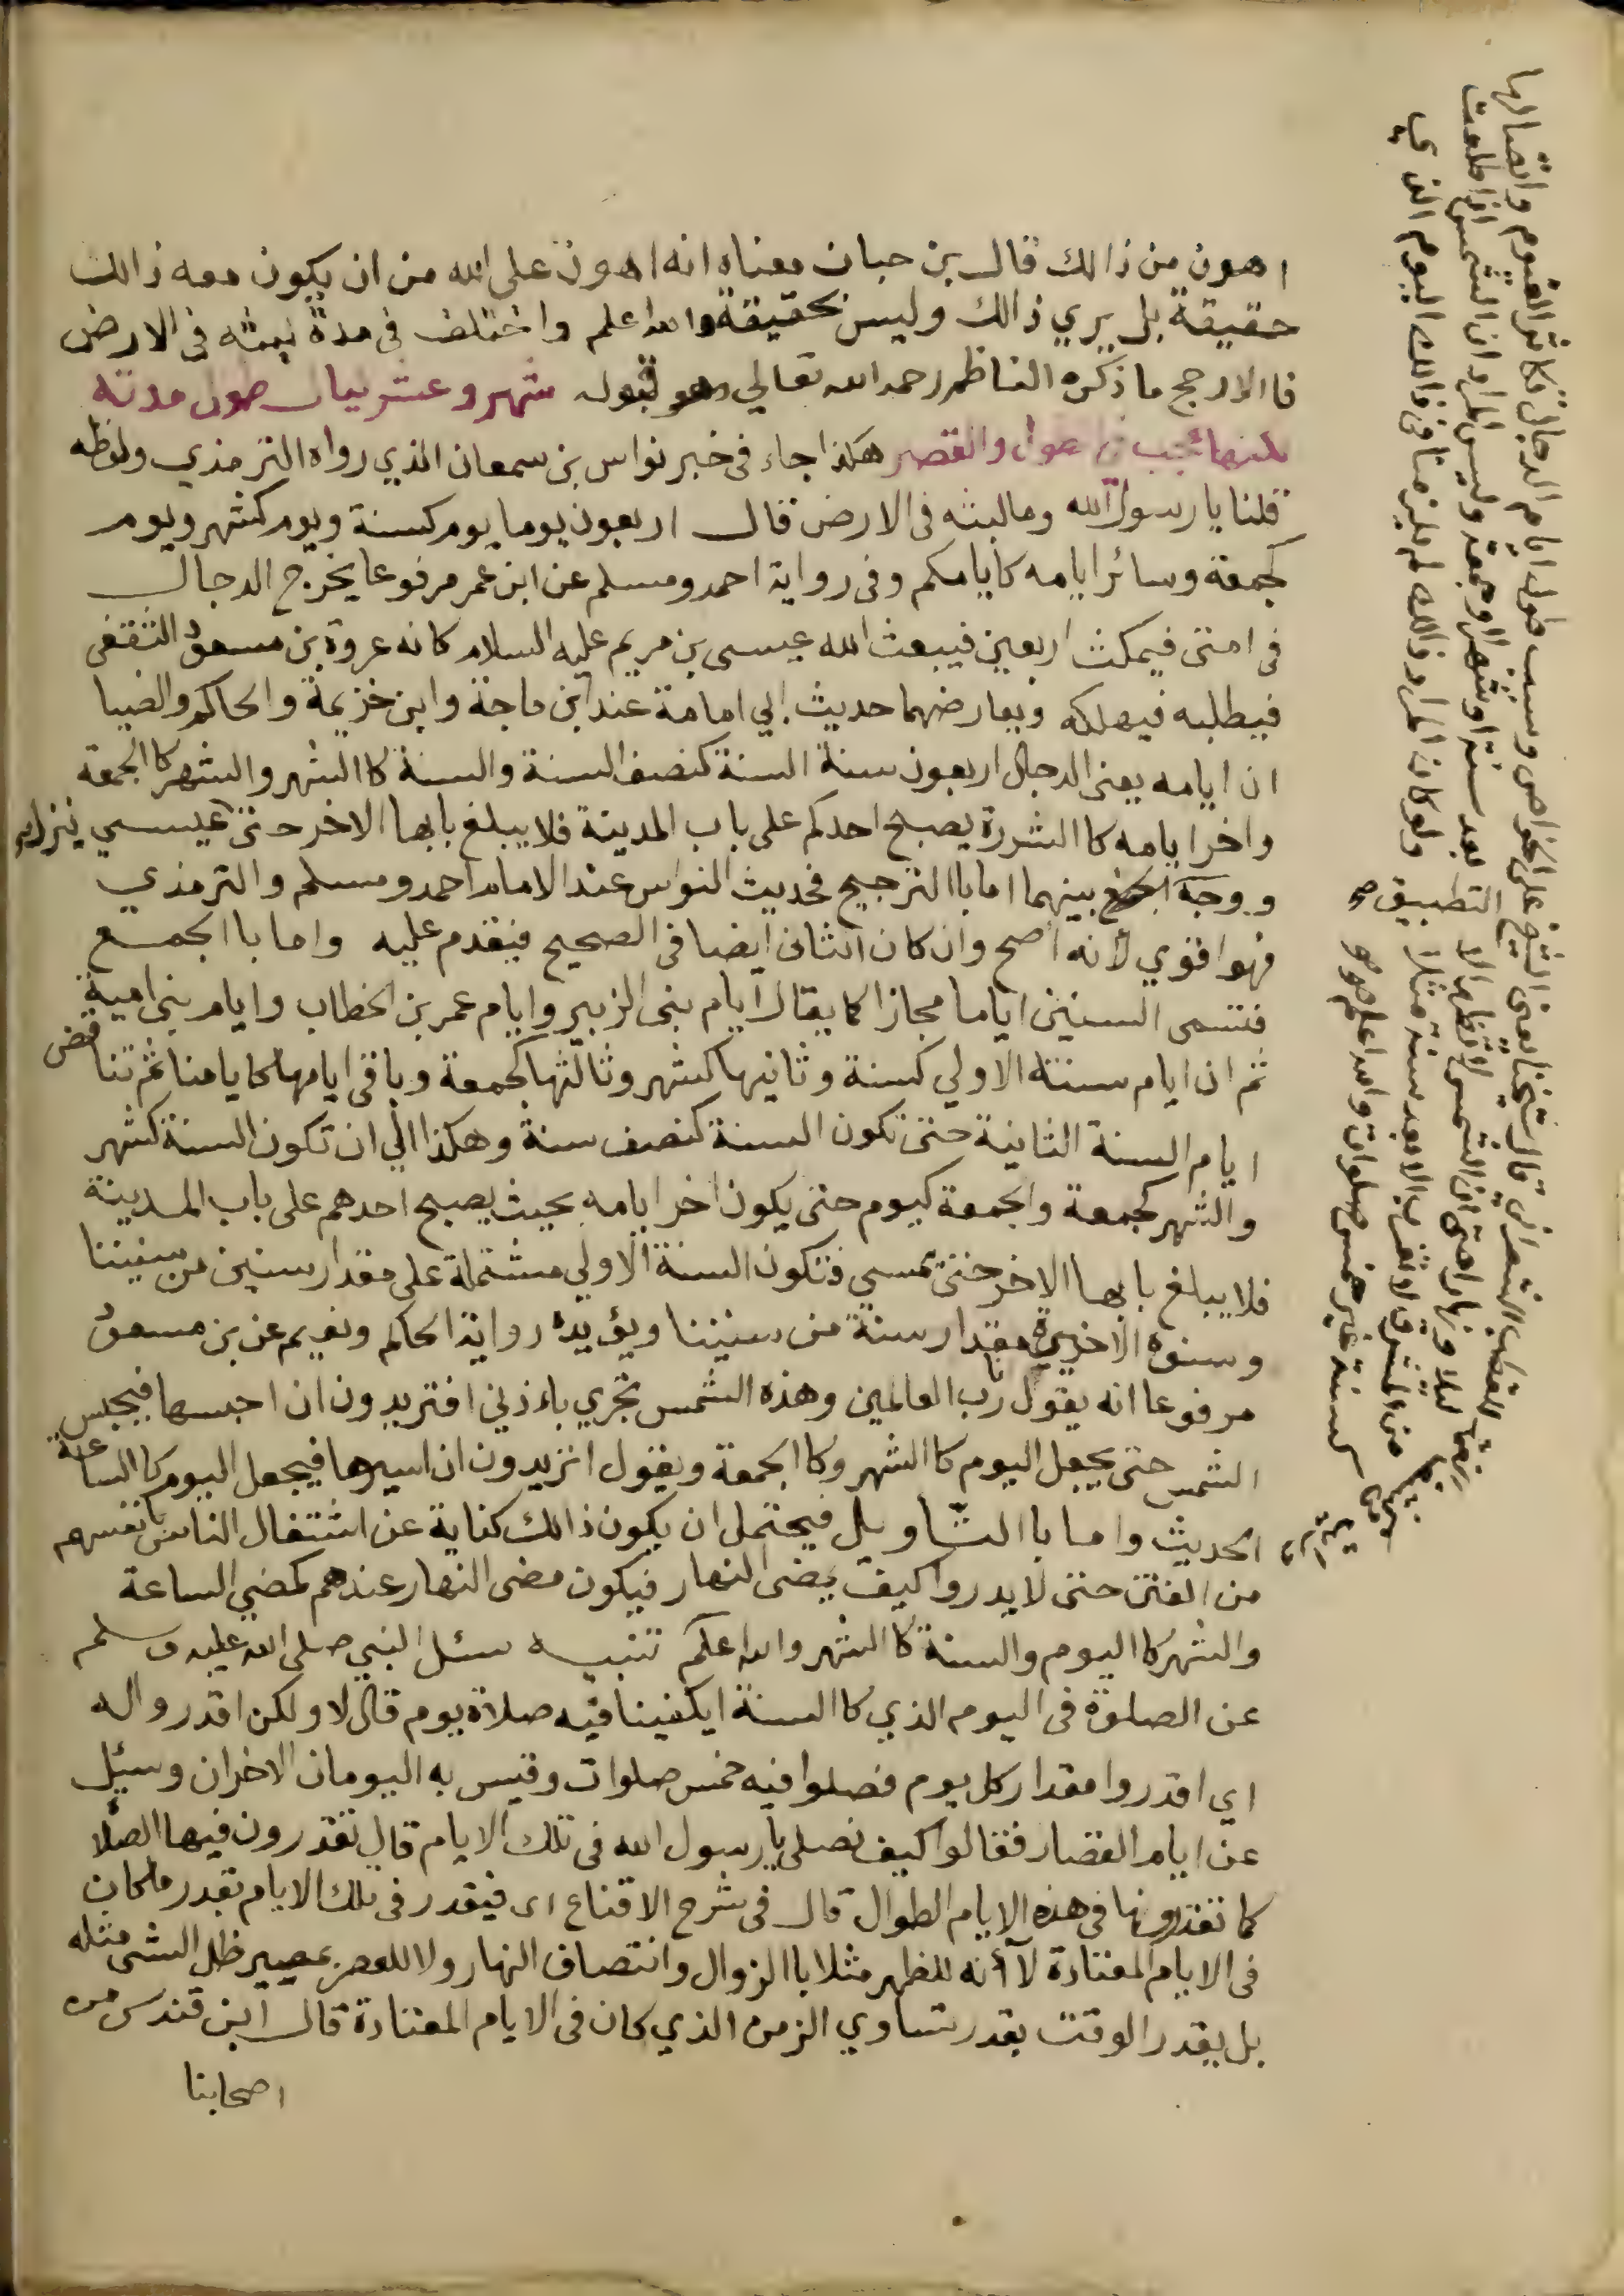 اهون من ذالك قال بن حبان معناه انه اهون على الله من ان يكون معه ذالك
حقيقة بل يري ذالك وليس بحقيقة والله اعلم واختلف فى مدة لبثه فى الارض
فا الارجح ما ذكره الناظم رحمه الله تعالي وهو قوله شهر وعشر بيان طول مدته
لكنها عجب فى الطول والقصر هكذا جاء فى خبر نواس بن سمعان الذي رواه الترمذي ولفظه
قلنا يا رسول الله وما لبثه فى الارض قال اربعون يوما يوم كسنة ويوم كشهر ويوم
كجمعة وسائر ايامه كايامكم وفى رواية احمد ومسلم عن ابن عمر مرفوعا يخرج الدجال
فى امتى فيمكث اربعين فيبعث الله عيسى بن مريم عليه السلام كانه عروة بن مسعود الثقفى
فيطلبه فيهلكه ويعارضهما حديث ابي امامة عند ابن ماجة وابن خزيمة والحاكم والضيا
ان ايامه يعنى الدجال اربعون سنة السنة كنصف السنة والسنة كا الشهر والشهر كا الجمعة
واخر ايامه كا الشررة يصبح احدكم على باب المدينة فلا يبلغ بابها الاخر حتى
ووجه الجمع بينهما اما با الترجيح فحديث النواس عند الامام احمد ومسلم والترمذي
فهو اقوي لأنه اصح وان كان الثانى ايضا فى الصحيح فيقدم عليه واما با الجمع
فتسمى السنين اياما مجازا كما يقال ايام بنى الزبير وايام عمر بن الخطاب وايام بنى امية
ثم ان ايام سنته الاولي كسنة وثانيها كشهر وثالثها كجمعة وباقى ايامها كايامنا ثم تتناقص
ايام السنة الثانية حتى تكون السنة كنصف سنة وهكذا الي ان تكون السنة كشهر
والشهر كجمعة والجمعة كيوم حتى يكون اخر ايامه بحيث يصبح احدهم على باب المدينة
فلا يبلغ بابها الاخر حتى تمسي فتكون السنة الاولي مشتملة على مقدار سنين من سنيننا
وسنوه الاخيرة مقدار سنة من سنيننا ويؤيده رواية الحاكم ونعيم عن بن مسعود
مرفوعا انه يقول انا رب العالمين وهذه الشمس تجري باءذني افتريدون ان احبسها فيحبس
الشمس حتى يجعل اليوم كا الشهر وكا الجمعة ويقول اتريدون ان اسيرها فيجعل اليوم كا الساعة
الحديث واما با التاويل فيحتمل ان يكون ذالك كناية عن اشتغال الناس بانفسهم
من الفتن حتى لا يدروا كيف يمضى النهار فيكون مضى النهار عندهم كمضي الساعة
والشهر كا اليوم والسنة كا الشهر والله اعلم تنبيه سئل النبي صلى الله عليه وسلم
عن الصلوة فى اليوم الذي كا السنة ايكفينا فيه صلاة يوم قال لا ولكن اقدروا له
اي اقدروا مقدار كل يوم فصلوا فيه خمس صلوات وقيس به اليومان الاخران وسئل
عن ايام القصار فقالوا كيف نصلى يا رسول الله فى تلك الايام قال تقدرون فيها الصلا
كما تقدرونها فى هذه الايام الطوال قال فى شرح الاقناع اى فيقدر فى تلك الايام بقدر ما كان
فى الايام المعتادة لا أنه للظهر مثلا با الزوال وانتصاف النهار ولا للعصر بمصير ظل الشى مثله
بل يقدر الوقت بقدر تساوي الزمن الذي كان فى الايام المعتادة قال ابن قندس من
اصحابنا
الشيخ على الخواص وسبب طول ايام الدجال تكاثر الغيوم واتصالها
ولو كان المراد ذالك لم يلزمنا فى ذالك اليوم الذي
كسنة غير خمس صلوات والله اعلم